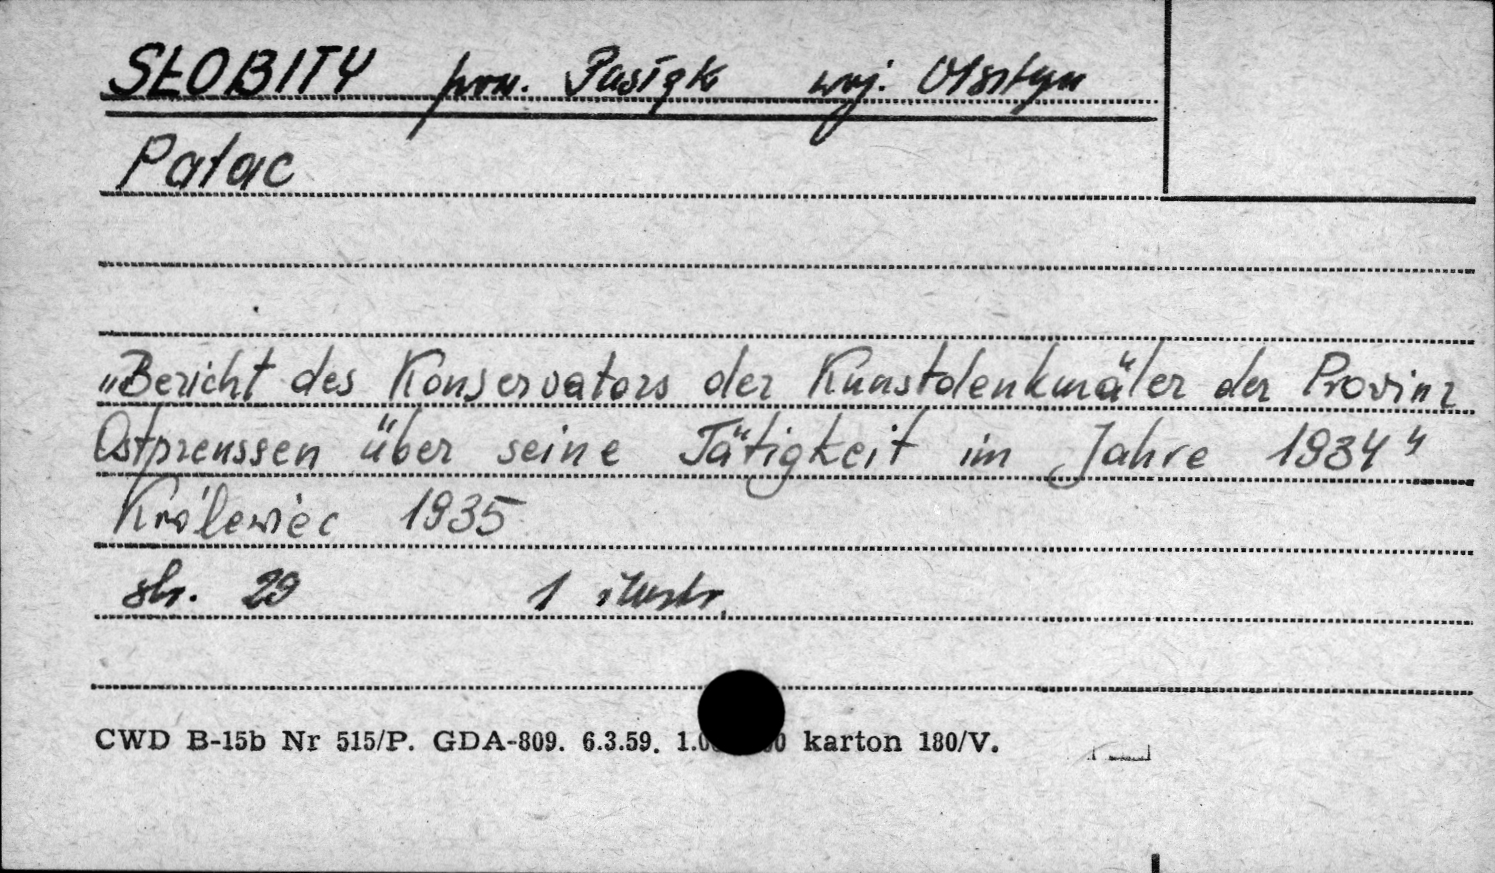 SŁOBITY pow. Pasłęk woj. Olsztyn
Pałac
„Bericht des Konservators der Kunstdenkmäler der Provinz
Ostpreussen über seine Tätigkeit im Jahre 1934"
Królewiec 1935
str. 29 1 ilustr.
CWD B-15b Nr 515/P. GDA-809. 6.3.59. karton 180/V.